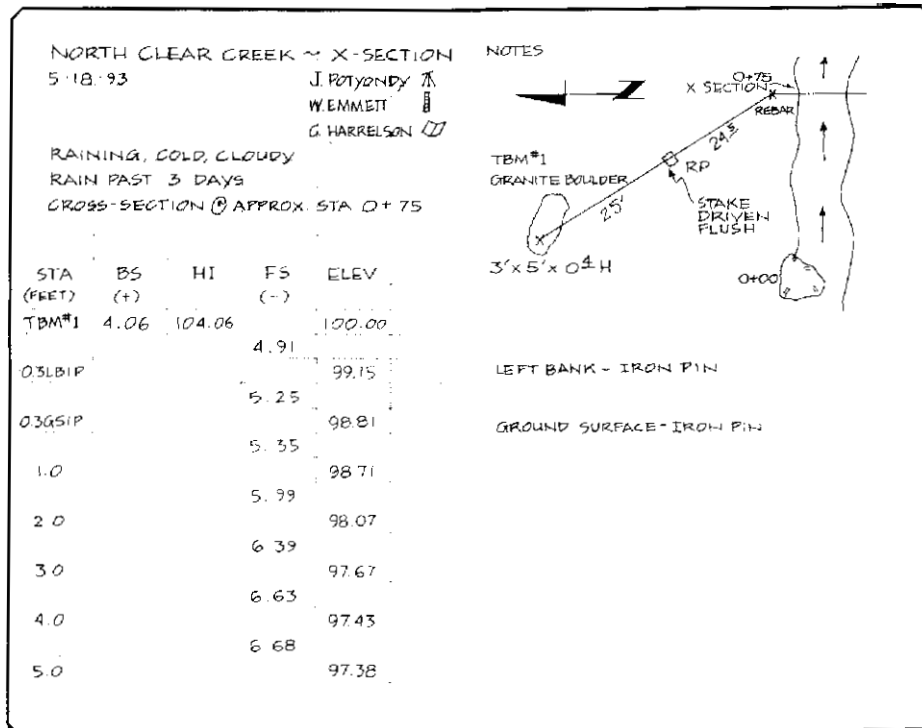 NORTH CLEAR CREEK ~ X-SECTION
5·18·93
J. POTYONDY
W. EMMETT
G. HARRELSON
RAINING, COLD, CLOUDY
RAIN PAST 3 DAYS
CROSS-SECTION @ APPROX. STA 0+75
STA BS HI FS ELEV
(FEET) (+) (-)
TBM#1 4.06 104.06 100.00
4.91
0.3LBIP 99.15
5.25
0.3GSIP 98.81
5.35
1.0 98.71
5.99
2.0 98.07
6.39
3.0 97.67
6.63
4.0 97.43
6.68
5.0 97.38
NOTES
Z
0+75
X SECTION
REBAR
24.5
RP
TBM#1
GRANITE BOULDER
25'
STAKE
DRIVEN
FLUSH
3'x5'x0.4 H
0+00
LEFT BANK - IRON PIN
GROUND SURFACE - IRON PIN